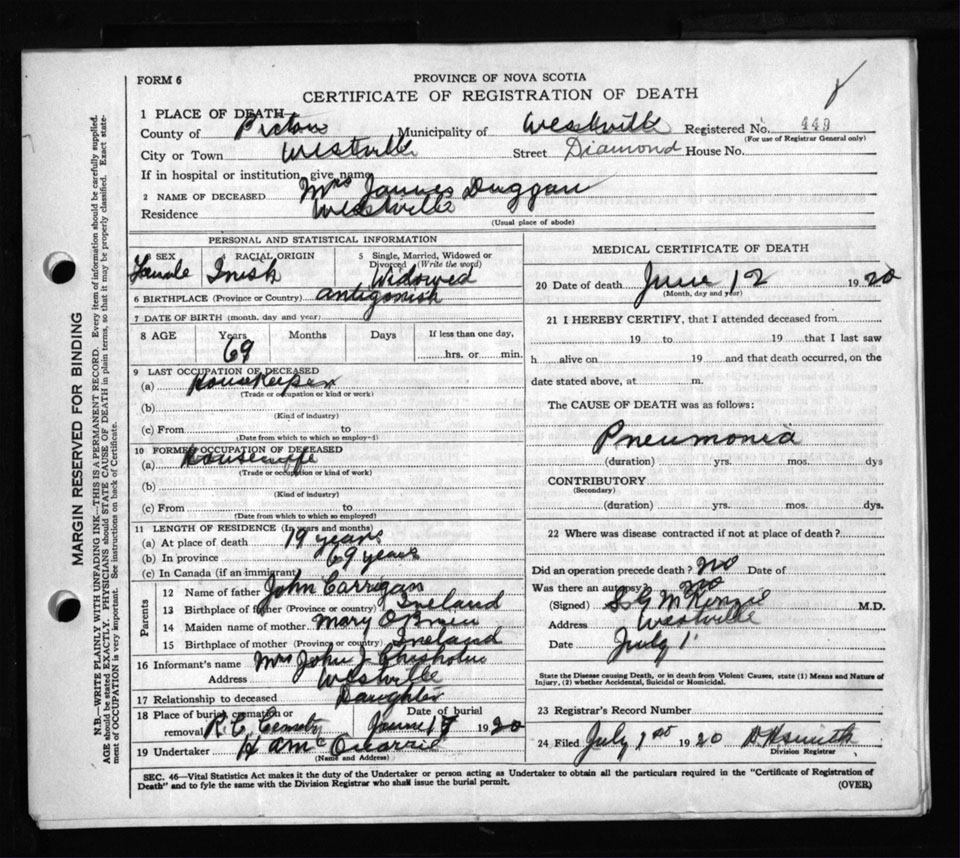 FORM 6
PROVINCE OF NOVA SCOTIA
CERTIFICATE OF REGISTRATION OF DEATH
1 PLACE OF DEATH
County of Pictou Municipality of Westville Registered No. 449
(For use of Registrar General only)
City or Town Westville Street Diamond House No.
If in hospital or institution, give name
2 NAME OF DECEASED Mrs James Duggan
Residence Westville
(Usual place of abode)
PERSONAL AND STATISTICAL INFORMATION
3 SEX 4 RACIAL ORIGIN 5 Single, Married, Widowed or Divorced (Write the word)
Female Irish Widowed
6 BIRTHPLACE (Province or Country) Antigonish
7 DATE OF BIRTH (month, day and year)
8 AGE Years Months Days If less than one day,
69 hrs. or min.
9 LAST OCCUPATION OF DECEASED
(a) Housekeeper
(Trade or occupation or kind or work)
(b)
(Kind of industry)
(c) From to
(Date from which to which so employed)
10 FORMER OCCUPATION OF DECEASED
(a) Housewife
(Trade or occupation or kind of work)
(b)
(Kind of industry)
(c) From to
(Date from which to which so employed)
11 LENGTH OF RESIDENCE (In years and months)
(a) At place of death 19 years
(b) In province 69 years
(c) In Canada (if an immigrant)
Parents
12 Name of father John Carrigan
13 Birthplace of father (Province or country) Ireland
14 Maiden name of mother Mary O'Brien
15 Birthplace of mother (Province or country) Ireland
16 Informant's name Mrs John J Chisholm
Address Westville
17 Relationship to deceased Daughter
18 Place of burial, cremation or removal R.C. Cemetry Date of burial June 17 1920
19 Undertaker H A McQuarrie
(Name and Address)
MEDICAL CERTIFICATE OF DEATH
20 Date of death June 12 1920
(Month, day and year)
21 I HEREBY CERTIFY, that I attended deceased from
19 to 19 that I last saw
h alive on 19 and that death occurred, on the
date stated above, at m.
The CAUSE OF DEATH was as follows:
Pneumonia
(duration) yrs. mos. dys
CONTRIBUTORY
(Secondary)
(duration) yrs. mos. dys.
22 Where was disease contracted if not at place of death?
Did an operation precede death? no Date of
Was there an autopsy? no
(Signed) S G McKenzie M.D.
Address Westville
Date July 1
State the Disease causing Death, or in death from Violent Causes, state (1) Means and Nature of
Injury, (2) whether Accidental, Suicidal or Homicidal.
23 Registrar's Record Number
24 Filed July 1st 1920 D H Smith
Division Registrar
SEC. 46—Vital Statistics Act makes it the duty of the Undertaker or person acting as Undertaker to obtain all the particulars required in the "Certificate of Registration of
Death" and to fyle the same with the Division Registrar who shall issue the burial permit. (OVER)
MARGIN RESERVED FOR BINDING
N.B.—WRITE PLAINLY WITH UNFADING INK—THIS IS A PERMANENT RECORD. Every item of information should be carefully supplied.
AGE should be stated EXACTLY. PHYSICIANS should STATE CAUSE OF DEATH in plain terms, so that it may be properly classified. Exact state-
ment of OCCUPATION is very important. See instructions on back of Certificate.